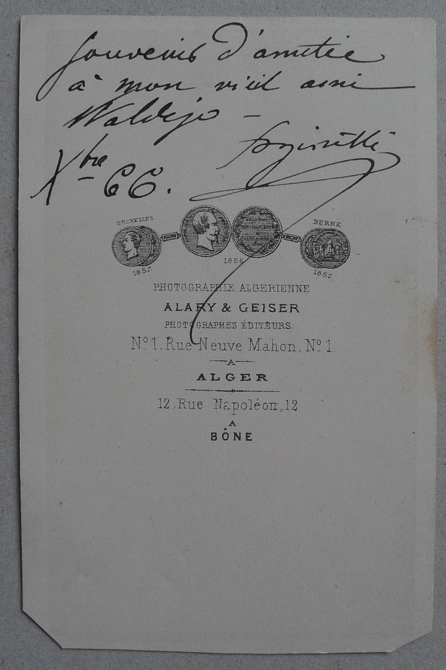 Souvenir d'amitié
à mon vieil ami
Waldejo -
Xbre 66.
BRUXELLES
BERNE
1857
1856
1857
PHOTOGRAPHIE ALGERIENNE
ALARY & GEISER
PHOTOGRAPHES ÉDITEURS
No 1, Rue Neuve Mahon, No 1
A
ALGER
12, Rue Napoléon, 12
A
BÔNE